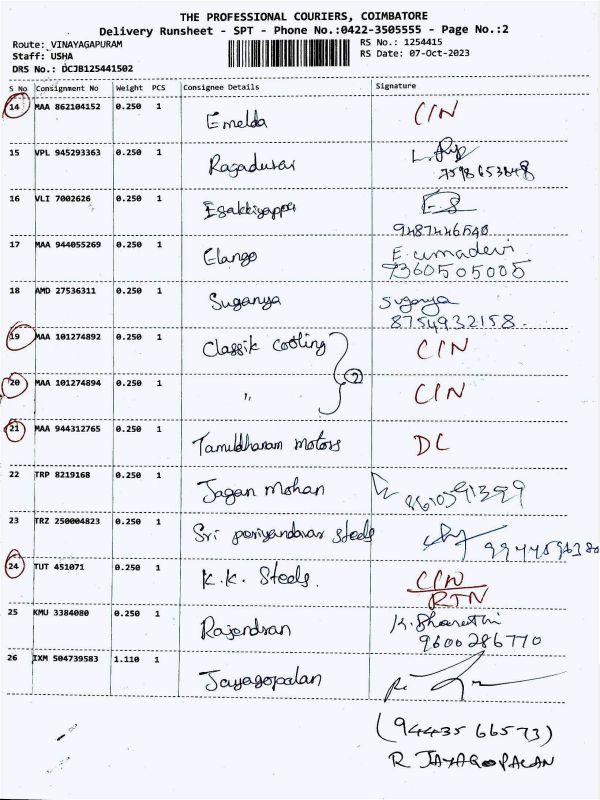 THE PROFESSIONAL COURIERS, COIMBATORE
Delivery Runsheet - SPT - Phone No.:0422-3505555 - Page No.:2
Route: VINAYAGAPURAM
Staff: USHA
DRS No.: DCJB125441502
RS No.: 1254415
RS Date: 07-Oct-2023
S No Consignment No Weight PCS Consignee Details Signature
14 MAA 862104152 0.250 1 Emelda CIN
15 VPL 945293363 0.250 1 Ragadurai
7598653848
16 VLI 7002626 0.250 1 Esakkiyappa ES
9487446540
17 MAA 944055269 0.250 1 Elango E. umadevi
9360505005
18 AMD 27536311 0.250 1 Suganya Suganya
8754932158.
19 MAA 101274892 0.250 1 Classik cooling CIN
20 MAA 101274894 0.250 1 " 2 CIN
21 MAA 944312765 0.250 1 Tamildharam motors DC
22 TRP 8219168 0.250 1 Jagan Mohan 8610591399
23 TRZ 250004823 0.250 1 Sri periyandavar steels
24 TUT 451071 0.250 1 K.K. Steels. CIN
RTN
25 KMU 3384080 0.250 1 Rajendran K. Bharathi
9600286770
26 IXM 504739583 1.110 1 Jayagopalan
(9443566573)
R JAYAGOPALAN